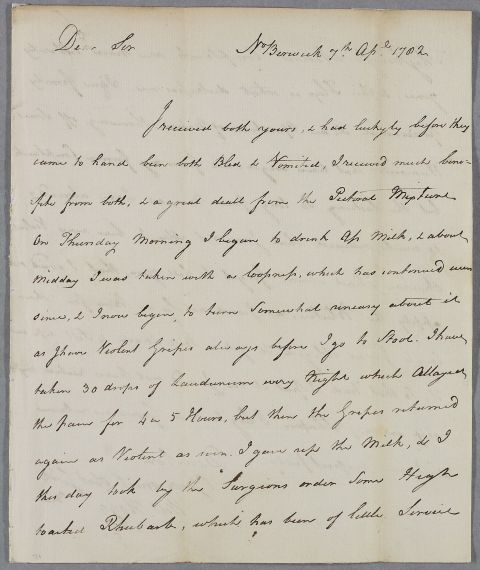 Dear Sir
No Berwick 7th Apl 1782
I received both yours, & had luckyly before they
came to hand been both Bled & Vomited, I received much bene-
fite from both, & a great deall from the Pectoral Mixture
On Thursday Morning I began to drink Ass Milk, & about
midday I was taken with a loosness, which has continued ever
since, & I now begin to turn Somewhat uneasy about it
as I have Violent Gripes always before I go to Stool. I have
taken 30 drops of Laudanum every Night which Allayed
the pain for 4 or 5 Hours, but then the Gripes returned
again as Violent as ever. I gave up the Milk, & I
this day took by the Surgeons order Some High
toasted Rhubarb, which has been of little Service